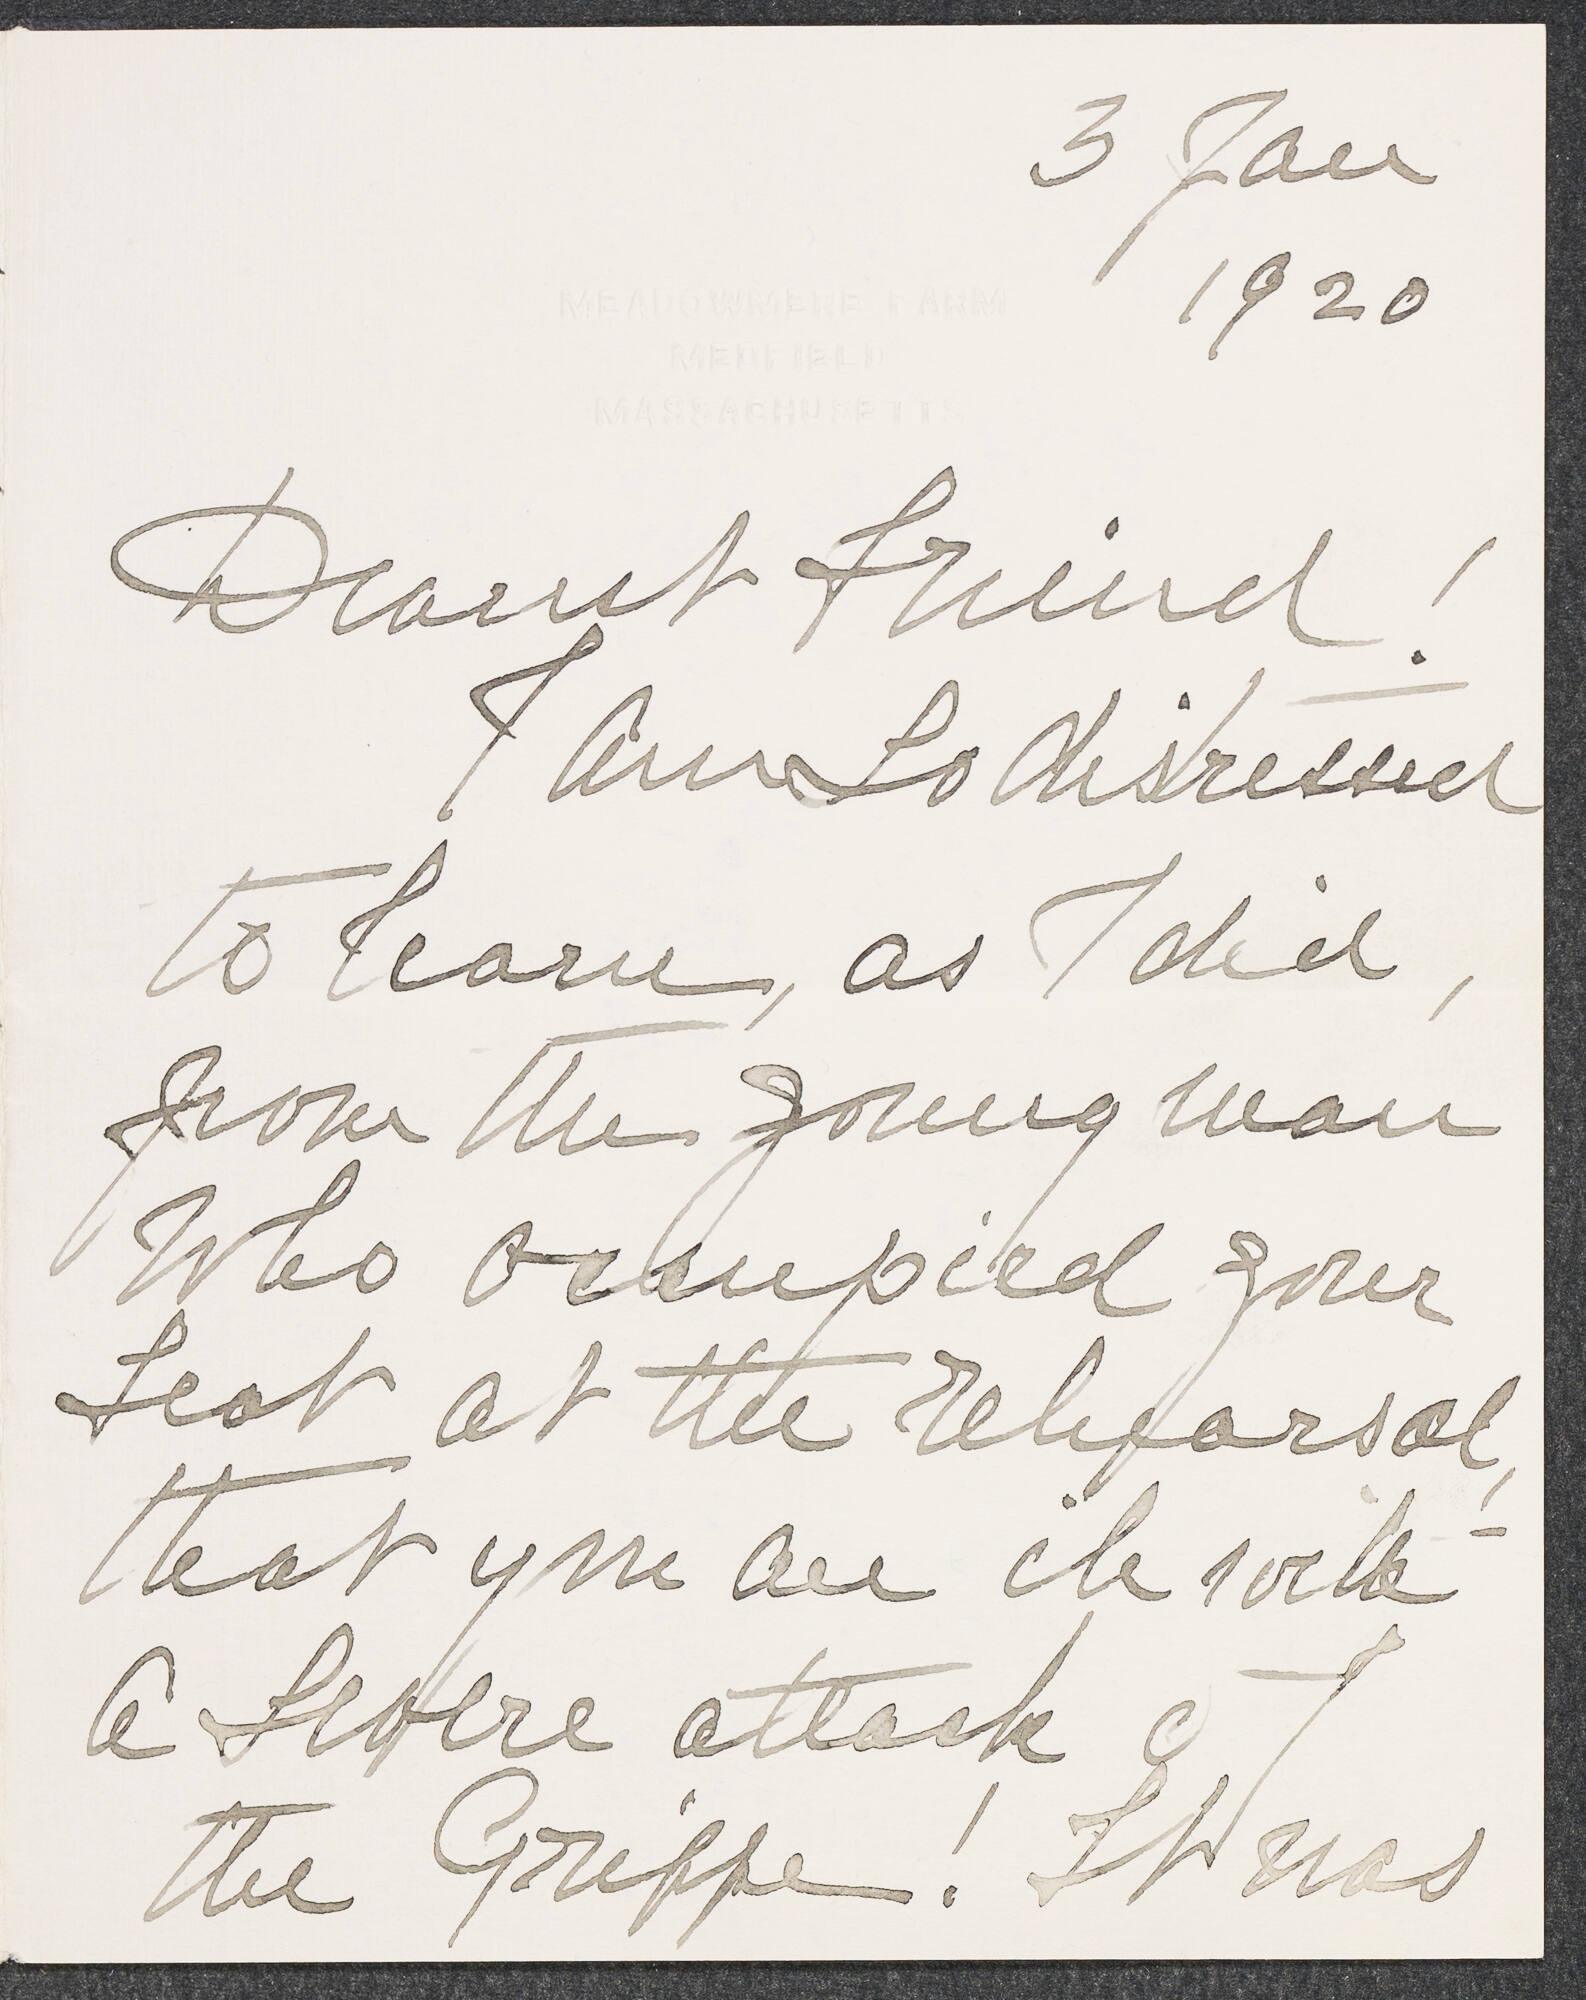 3 Jan
1920
MEADOWMERE FARM
MEDFIELD
MASSACHUSETTS
Dearest Friend!
I am so distressed
to learn, as I did,
from the young man
who occupied your
seat at the rehearsal,
that you are ill with
a severe attack of
the Grippe! It was